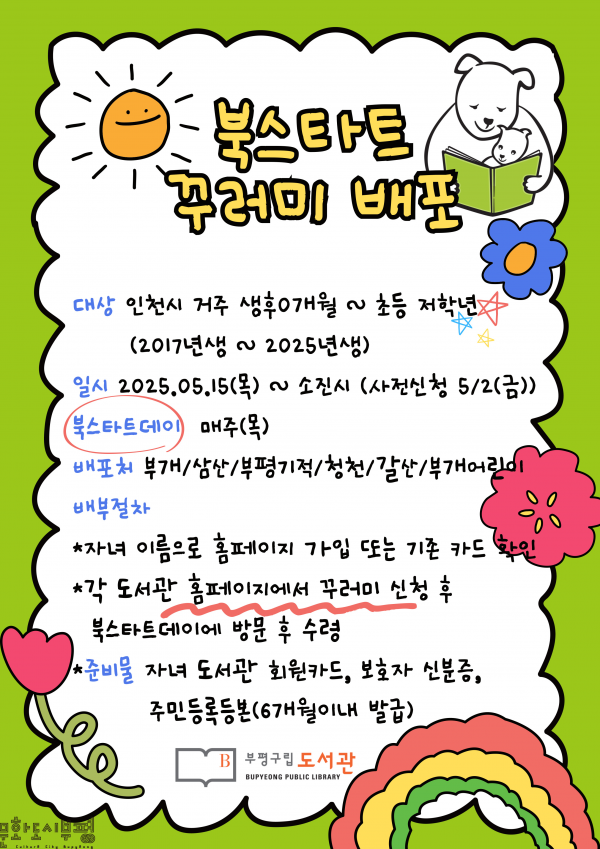 북스타트
꾸러미 배포
대상 인천시 거주 생후0개월 ~ 초등 저학년
(2017년생 ~ 2025년생)
일시 2025.05.15(목) ~ 소진시 (사전신청 5/2(금))
북스타트데이 매주(목)
배포처 부개/삼산/부평기적/청천/갈산/부개어린이
배부절차
*자녀 이름으로 홈페이지 가입 또는 기존 카드 확인
*각 도서관 홈페이지에서 꾸러미 신청 후
북스타트데이에 방문 후 수령
*준비물 자녀 도서관 회원카드, 보호자 신분증,
주민등록등본(6개월이내 발급)
B 부평구립 도서관
BUPYEONG PUBLIC LIBRARY
문화도시부평